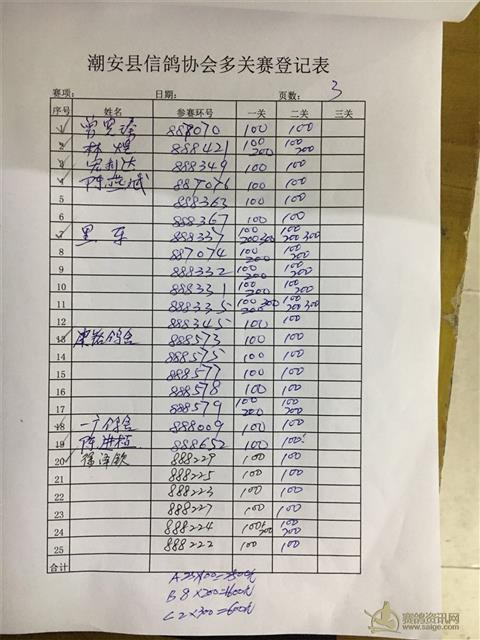 潮安县信鸽协会多关赛登记表
赛项: 日期: 页数: 3
序号 姓名 参赛环号 一关 二关 三关
1 888070 100 100
2 林煌 888421 100 200 100 200
3 宏利达 888349 100 100
4 陈燕斌 887076 100 100
5 888363 100 100
6 888367 100 100
7 黑车 888337 100 200 300 100 200 300
8 887074 100 200 100 200
9 888332 100 200 100 200
10 888331 100 200 100 200
11 888335 100 200 300 100 200 300
12 888345 100 100
13 鸽舍 888573 100 100
14 888575 100 100
15 888577 100 100
16 888578 100 100
17 888579 100 200 100 200
18 一广鸽舍 888009 100 100
19 888652 100 100
20 徐泽钦 888229 100 100
21 888225 100 100
22 888223 100 100
23 888227 100 100
24 888224 100 200 100 200
25 888222 100 100
合计
A 25×100=2500元
B 8×200=1600元
C 2×300=600元
赛鸽资讯网
www.saige.com